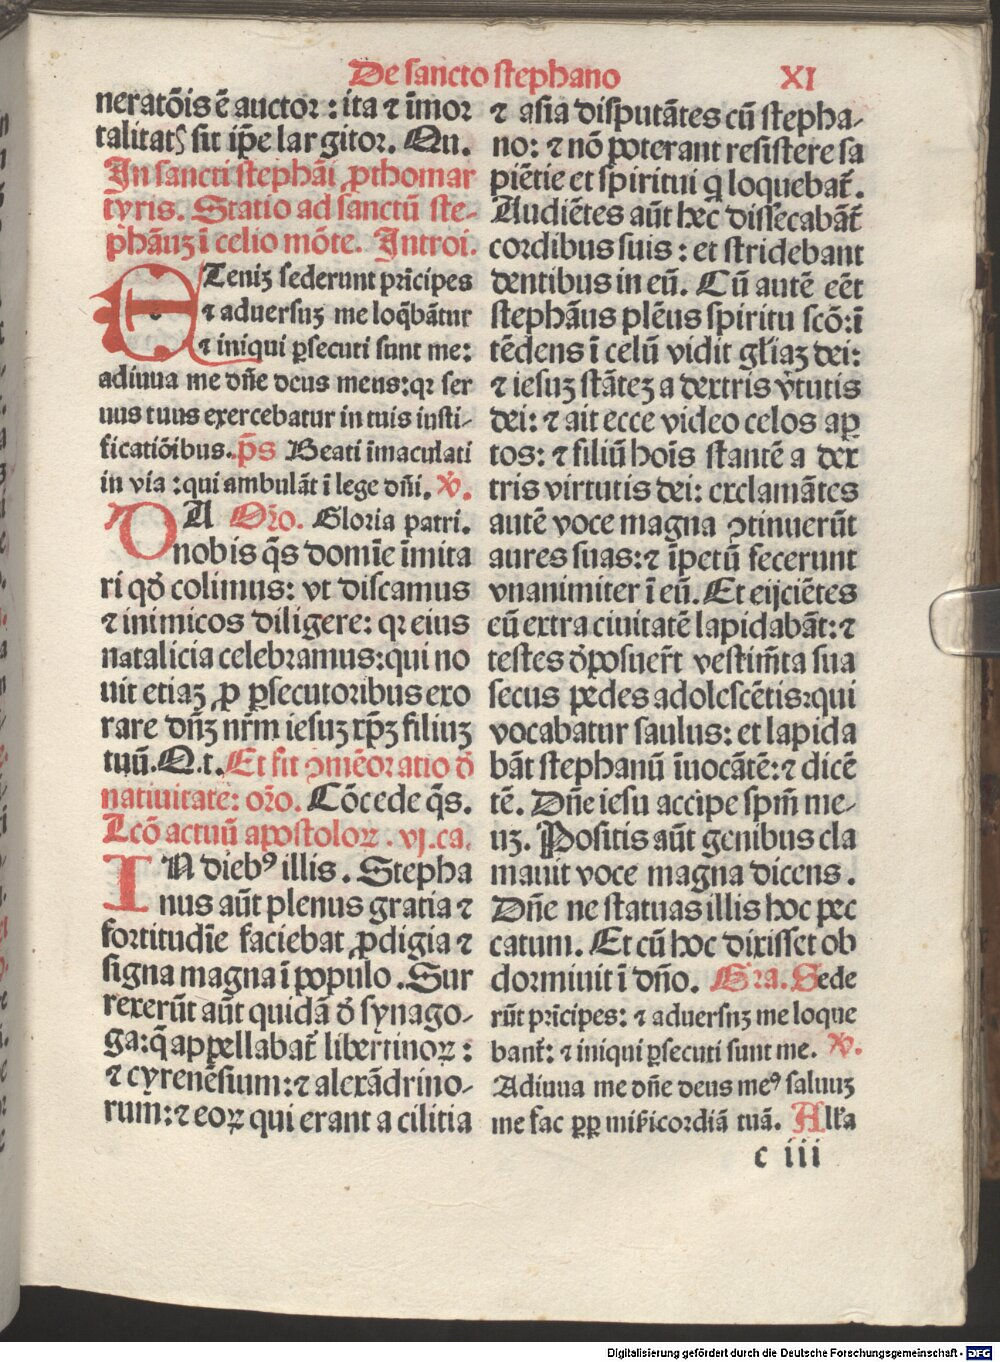 De sancto stephano XI
neratōis ē auctor: ita ⁊ īmor
talitatꝭ sit ip̄e largitor. Qu.
In sancti stephāi ꝓthomar
tyris. Statio ad sanctū ste-
phāuꝫ ī celio mōte. Introi.
ETeniꝫ sederunt prīcipes
⁊ aduersuꝫ me loq̄bātur
⁊ iniqui ꝑsecuti sunt me:
adiuua me dn̄e deus meus: qꝛ ser
uus tuus exercebatur in tuis iusti-
ficatiōibus. p̄s Beati īmaculati
in via: qui ambulāt ī lege dn̄i. ℣.
DA Oro. Gloria patri.
nobis q̄s domīe īmita
ri qd̄ colimus: vt discamus
⁊ inimicos diligere: qꝛ eius
natalicia celebramus: qui no
uit etiaꝫ ꝓ ꝑsecutoribus exo
rare dn̄ꝫ nr̄m iesuꝫ xp̄ꝫ filiuꝫ
tuū. Q.t. Et fit ꝯmēoratio d̄
natiuitate: oro. Cōcede q̄s.
Lcō actuū apostoloꝝ. vj. ca.
IN diebꝰ illis. Stepha
nus aūt plenus gratia ⁊
fortitudīe faciebat ꝓdigia ⁊
signa magna ī populo. Sur
rexerūt aūt quidā d̄ synago-
ga: q̄ appellabat̄ libertinoꝝ:
⁊ cyrenēsium: ⁊ alexādrino-
rum: ⁊ eoꝝ qui erant a cilitia
⁊ asia disputātes cū stepha-
no: ⁊ nō poterant resistere sa
piētie et spiritui q̄ loquebat̄.
Audiētes aūt hec dissecabāt̄
cordibus suis: et stridebant
dentibus in eū. Cū autē eēt
stephāus plēus spiritu scō: ī
tēdens ī celū vidit gl̄iaꝫ dei:
⁊ iesuꝫ stāteꝫ a dextris v̄tutis
dei: ⁊ ait ecce video celos aꝑ
tos: ⁊ filiū hoīs stantē a dex
tris virtutis dei: exclamātes
autē voce magna ꝯtinuerūt
aures suas: ⁊ īpetū fecerunt
vnanimiter ī eū. Et eijciētes
eū extra ciuitatē lapidabāt: ⁊
testes d̄posuer̄t vestim̄ta sua
secus pedes adolescētis: qui
vocabatur saulus: et lapida
bāt stephanū īuocātē: ⁊ dicē
tē. Dn̄e iesu accipe spm̄ me-
uꝫ. Positis aūt genibus cla
mauit voce magna dicens.
Dn̄e ne statuas illis hoc pec
catum. Et cū hoc dixisset ob
dormiuit ī dn̄o. Gra. Sede
rūt prīcipes: ⁊ aduersuꝫ me loque
bant̄: ⁊ iniqui ꝑsecuti sunt me. ℣.
Adiuua me dn̄e deus meꝰ saluuꝫ
me fac ꝓp̄ mīs̄icordiā tuā. All'a
c iii
Digitalisierung gefördert durch die Deutsche Forschungsgemeinschaft - DFG